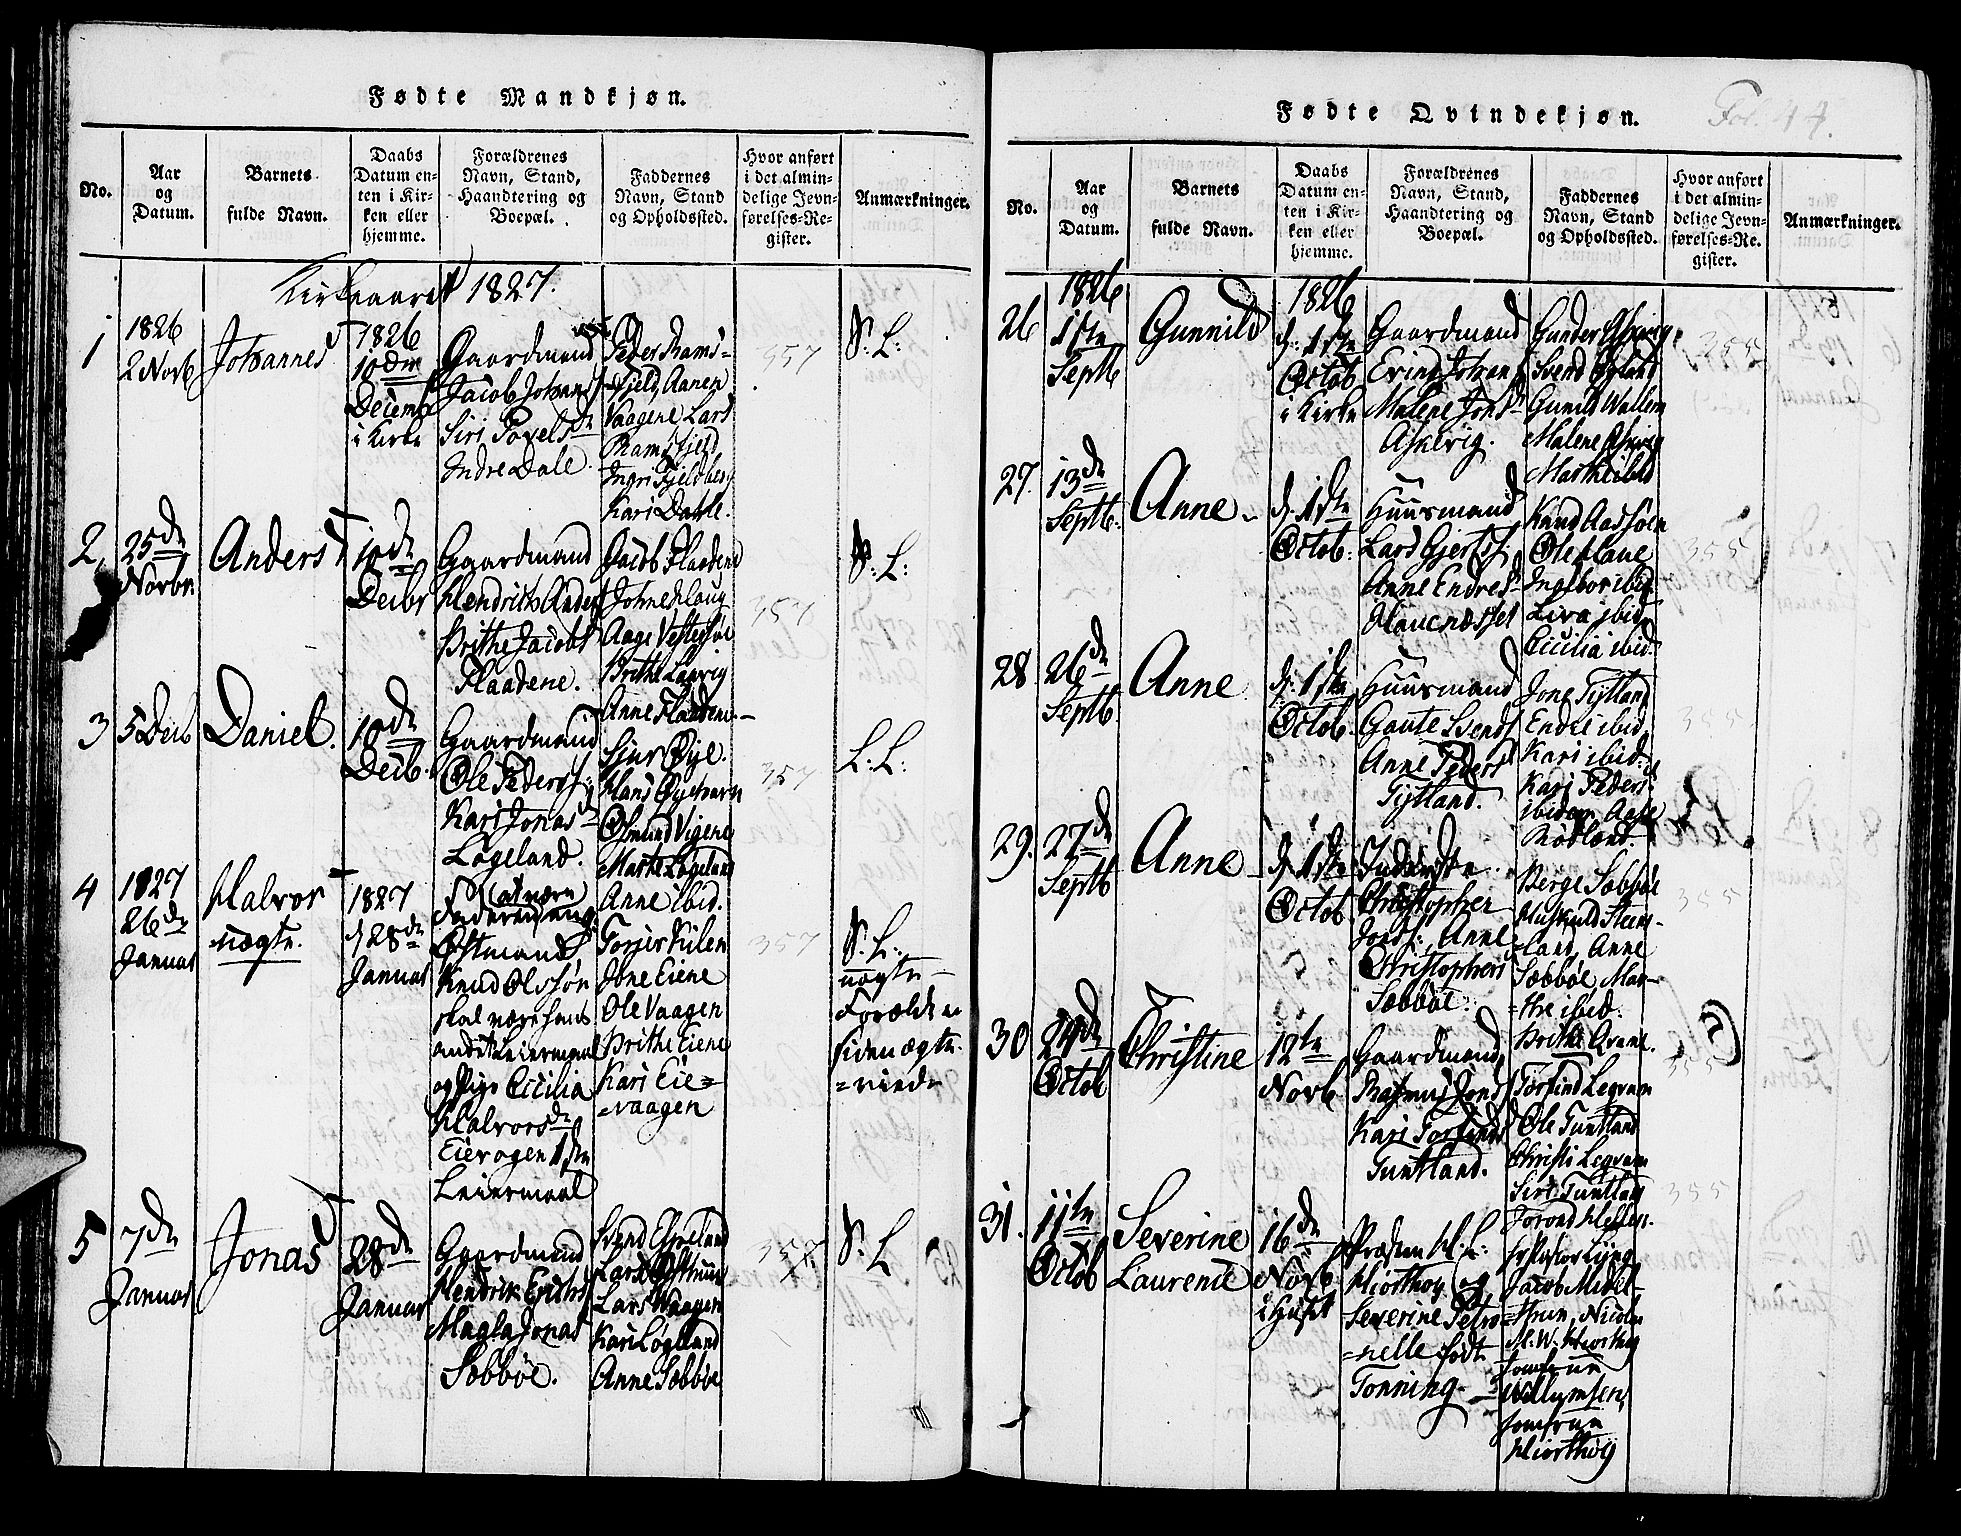 Fødte Mandkjøn.
No.
Aar
og
Datum.
Barnets
fulde Navn.
Daabs
Datum en-
ten i Kir-
ken eller
hjemme.
Forældrenes
Navn, Stand,
Haandtering og
Boepæl.
Faddernes
Navn, Stand
og Opholdssted.
Hvor anført
i det almin-
delige Jevn-
førelses-Re-
gister.
Anmærkninger.
Kirkeaaret 1827.
1
1826
2 Novb
Johannes
1826
10de
Decemb
i Kirke
Gaardmand
Jacob Johans
Siri Povels
Indre Dale
Peder Rams-
fjeld, Aanen
Vaagene Lars
Ramsfjeld
Ingri Fjeldberg
Kari Dahle.
357
S: L:
2
25de
Novbr.
Anders
10de
Decbr
Gaardmand
Hendrik Anders
Brithe Jacobs
Fladene.
Jacob Fladene
John Haug
Aage Vestersøe
Brithe Laavig
Anne Fladene
357
S: L:
3
5 Decb
Daniel.
10de
Decb.
Gaardmand
Ole Peders
Kari Jonas
Løgeland.
Sjur Øye.
Hans
Osmund Vigene
Marthe Løgeland
Anne ibid.
357
L: L:
4
1827
26de
Januar
Halvor
uægte.
1827
d 28de
Januar
Østmand
Knud Olssøn
skal være hans
andet Leiermaal
og Pige Cicilia
Halvors
Eievagen 1ste
Leiermaal
Torjer Kilen
Jone Eiene
Ole Vaagen
Brithe Eiene
Kari Eie=
=vaagen
357
S: L:
uægte
Forældrene
siden ægte-
=viede
5
7de
Januar
Jonas
28de
Januar
Gaardmand
Hendrik Erichs
Magla Jonas
Søbbøe.
Svend
Lars Østhuus
Lars Waagen
Kari Løgeland
Anne Søbbøe
357
S: L
Fødte Qvindekjøn.
Fol. 44.
No.
Aar
og
Datum.
Barnets
fulde Navn.
Daabs
Datum en-
ten i Kir-
ken eller
hjemme.
Forældrenes
Navn, Stand,
Haandtering og
Boepæl.
Faddernes
Navn, Stand
og Opholdssted.
Hvor anført
i det almin-
delige Jevn-
førelses-Re.
gister.
Anmærkninger.
26
1826
1ste
Septb
Gunnild
1826
d: 1ste
Octob
i Kirke
Gaardmand
Erind Johans
Malene Jons
Askevig.
Gunder Askevig
Svend Øgland
Gunild Wallem
Malene Askevig
Marthe ibid
355
27.
13de
Septb.
Anne
d: 1ste
Octob:
Huusmand
Lars Gjerts
Anne Endres
Hauenæsset
Knud Aadsøen
Ole Haue
Ingebor ibid
Liva ibid
Cicilia ibid
355
28
26de
Septb
Anne
d: 1ste
Octob.
Huusmand
Gaute Svends
Anne Peders
Tytland.
Jone Tytland
Endre ibid
Kari ibid.
Kari Peders
ibidem, Aase
Rødland.
355
29.
27de
Septb
Anne
d 1ste
Octob
Inderste
Christopher
Jons: Anne
Christophers
Søbbøe.
Berge Søbbøe
Aus Knud Steens-
=land, Anne
Søbbøe, Mar-
=the ibid.
Brithe Qvene.
355
30
24de
Octob
Christine
12te
Novb
Gaardmand
Rasmus Jons
Kari Torfinds
Tuntland.
Torfind Legvam
Ole Tuntland
Christi Legvam
Siri Tuntland
355
31.
11te
Octob
Severine
Laurence
16de
Novb
i Huset
Præsten H: L:
Hiorthøy og
Severine Petro
=nelle født
Tonning
Hr Pastor Lÿng
Jacob Midel-
=thun, Nicolai
M. W. Hiorthøy
Jomfrue
Willumsen,
Jomfrue
Hiorthøy
355